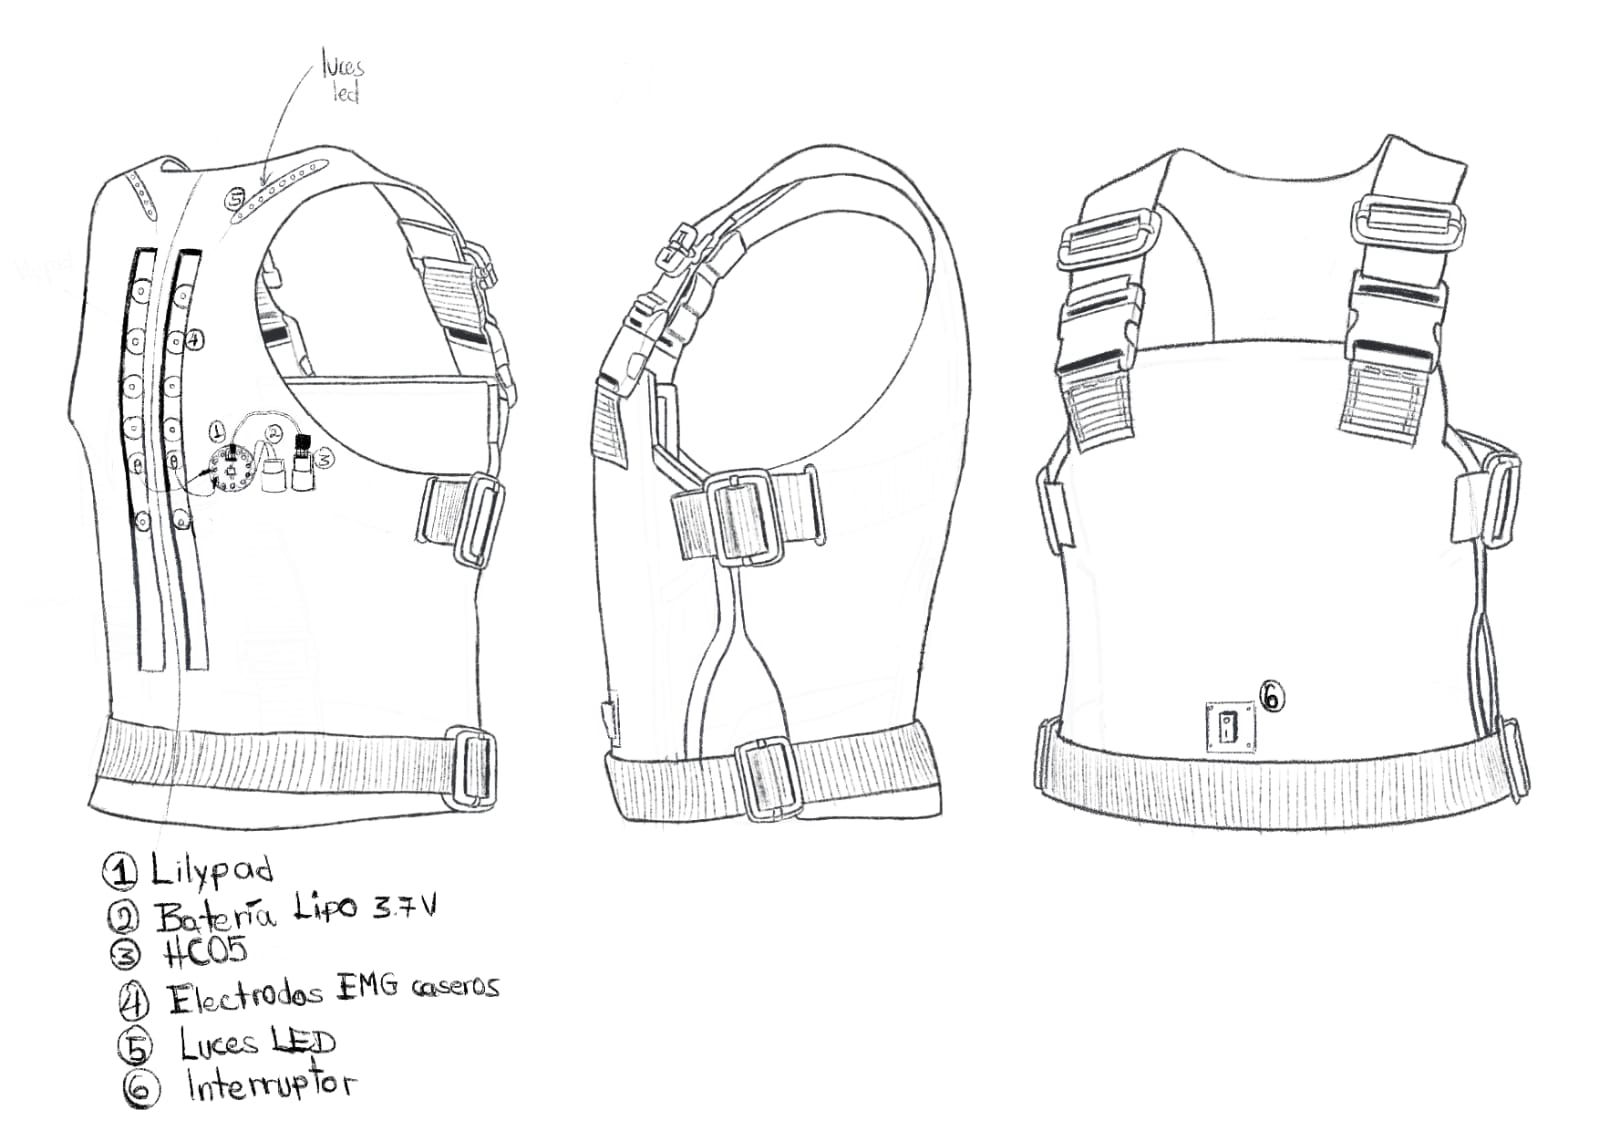 luces
led
5
4
1
2
3
6
1 Lilypad
2 Batería Lipo 3.7V
3 HC05
4 Electrodos EMG caseros
5 Luces LED
6 Interruptor